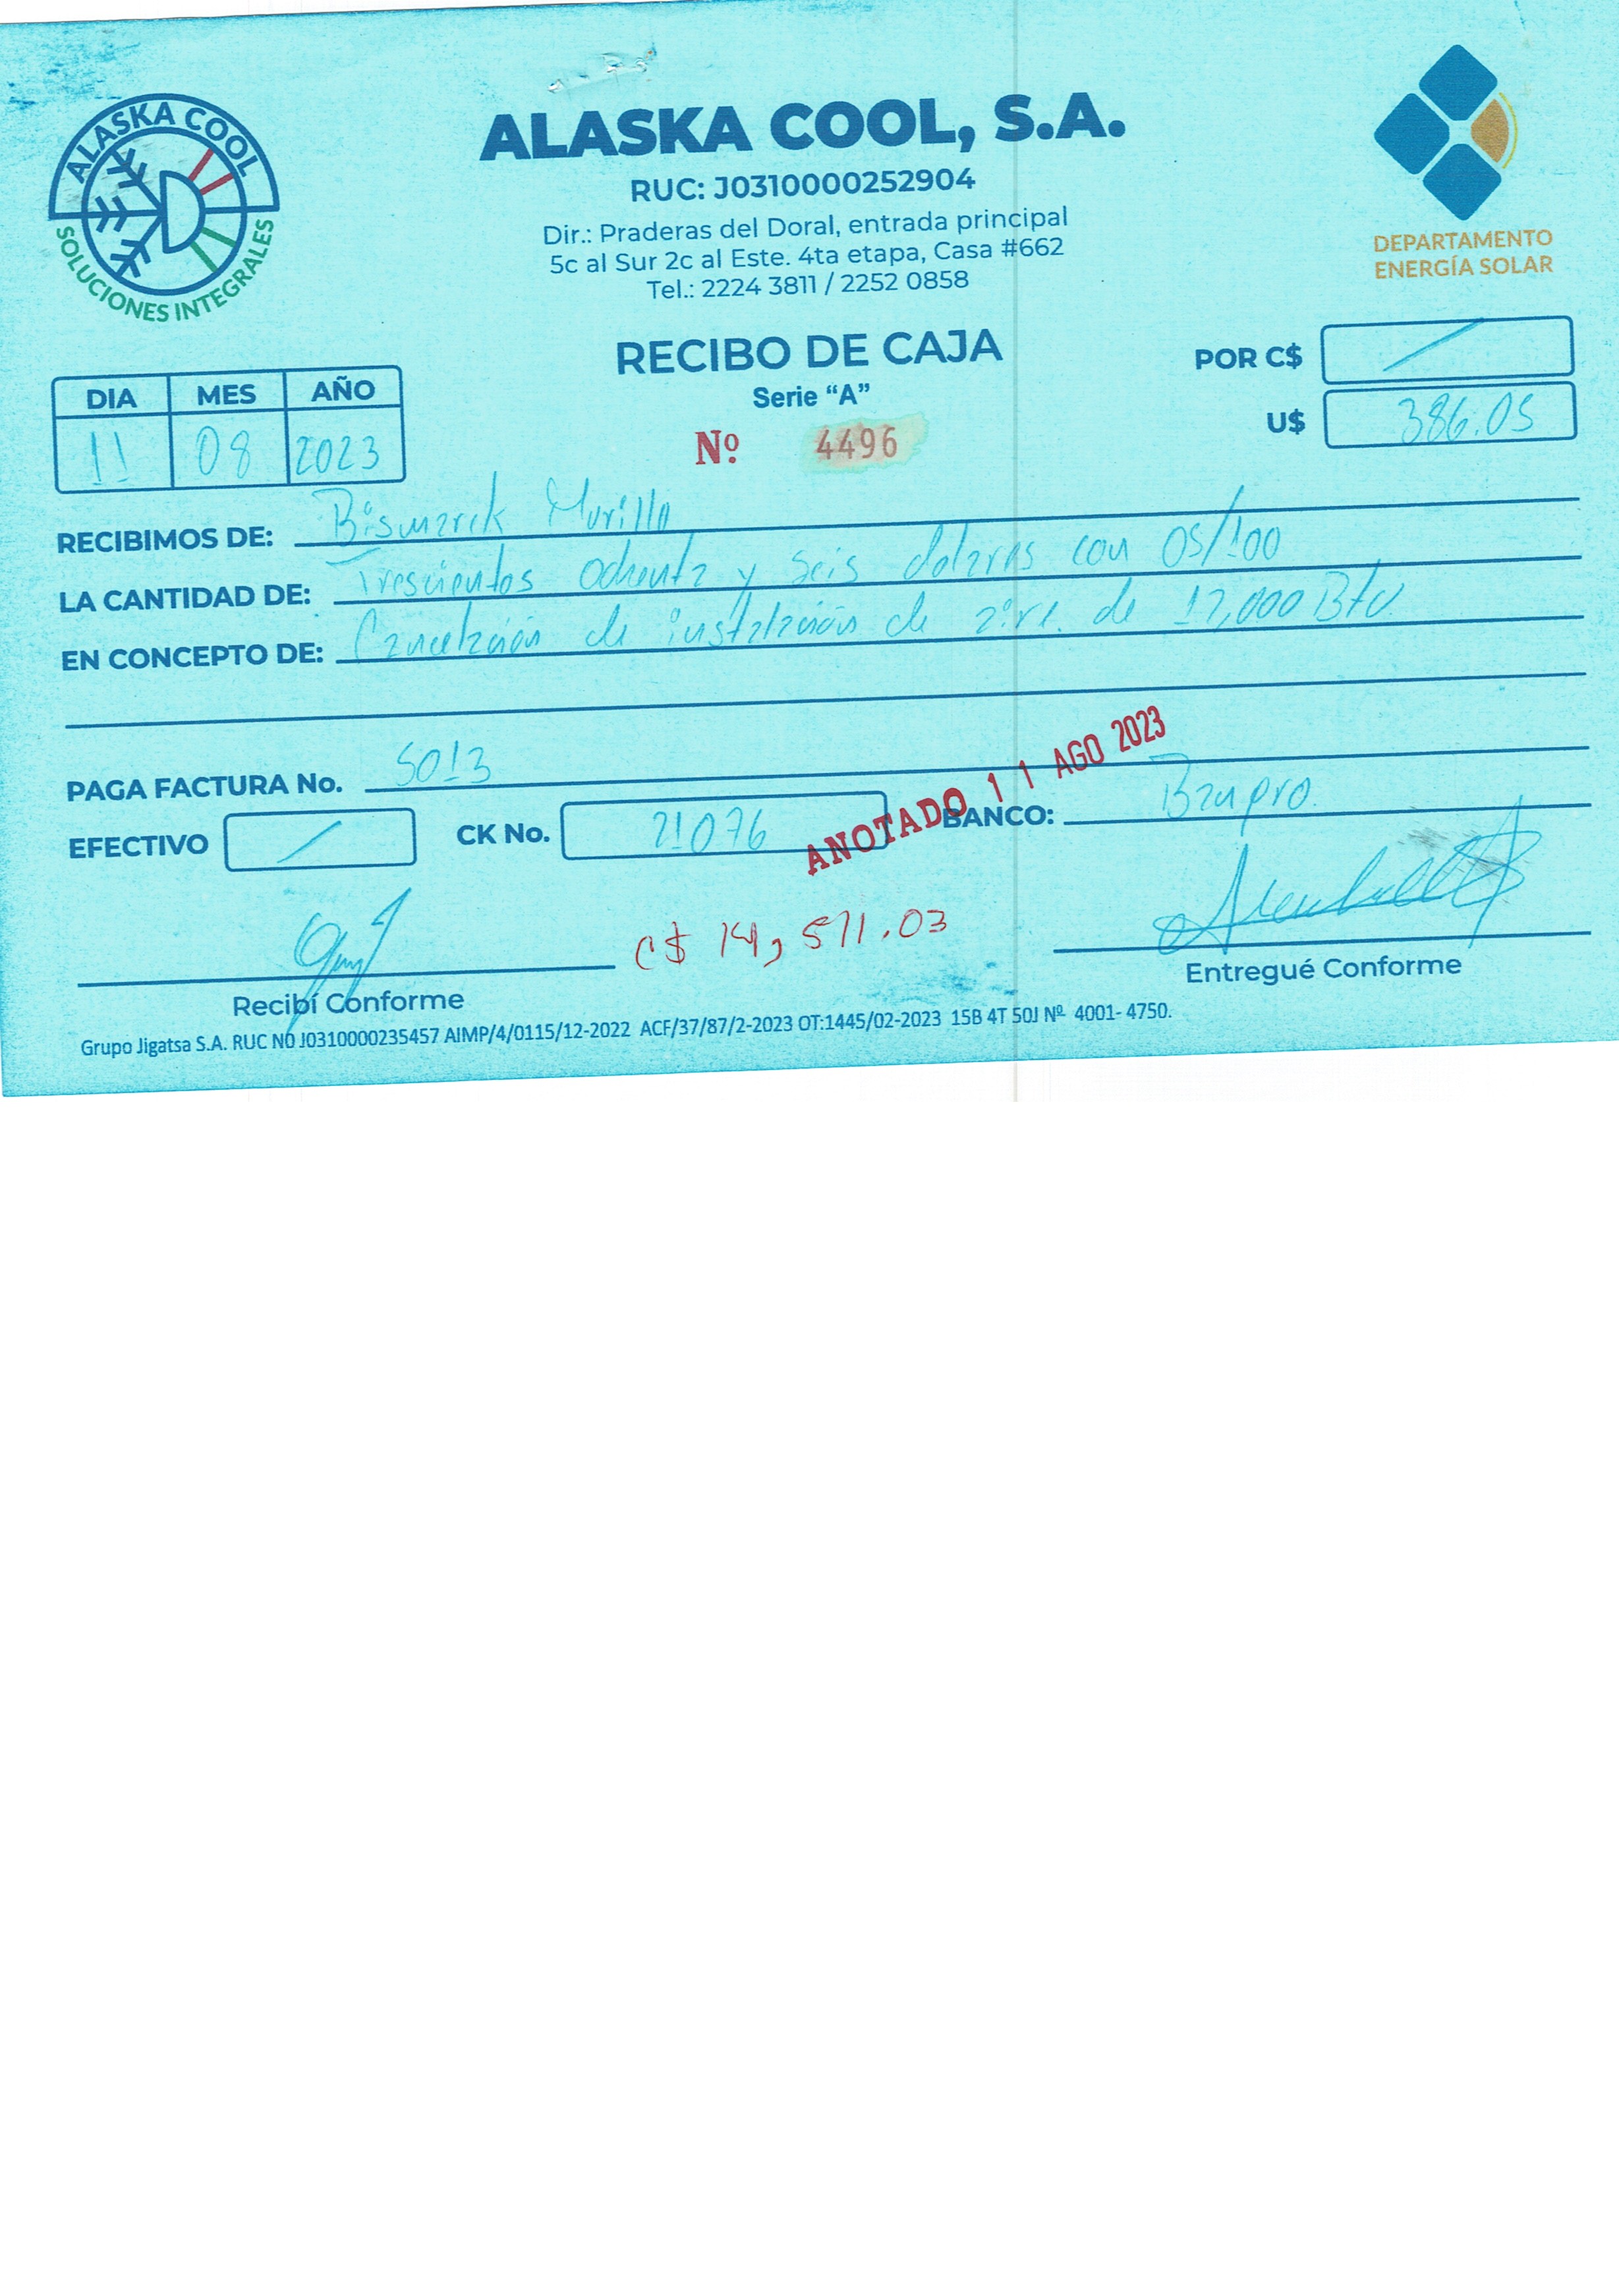 ALASKA COOL
SOLUCIONES INTEGRALES
ALASKA COOL, S.A.
RUC: J0310000252904
Dir.: Praderas del Doral, entrada principal
5c al Sur 2c al Este. 4ta etapa, Casa #662
Tel.: 2224 3811 / 2252 0858
DEPARTAMENTO
ENERGÍA SOLAR
RECIBO DE CAJA
Serie “A”
Nº 4496
POR C$
U$ 386.05
DIA MES AÑO
11 08 2023
RECIBIMOS DE: Bismarck Murillo
LA CANTIDAD DE: Trescientos ochenta y seis dolares con 05/100
EN CONCEPTO DE: Cancelación de instalación de aire de 12,000 Btu.
PAGA FACTURA No. 5013
ANOTADO 11 AGO 2023
EFECTIVO CK No. 21076 BANCO: Banpro.
C$ 14,
Recibí Conforme
Entregué Conforme
Grupo Jigatsa S.A. RUC N0 J0310000235457 AIMP/4/0115/12-2022 ACF/37/87/2-2023 OT:1445/02-2023 15B 4T 50J Nº 4001- 4750.